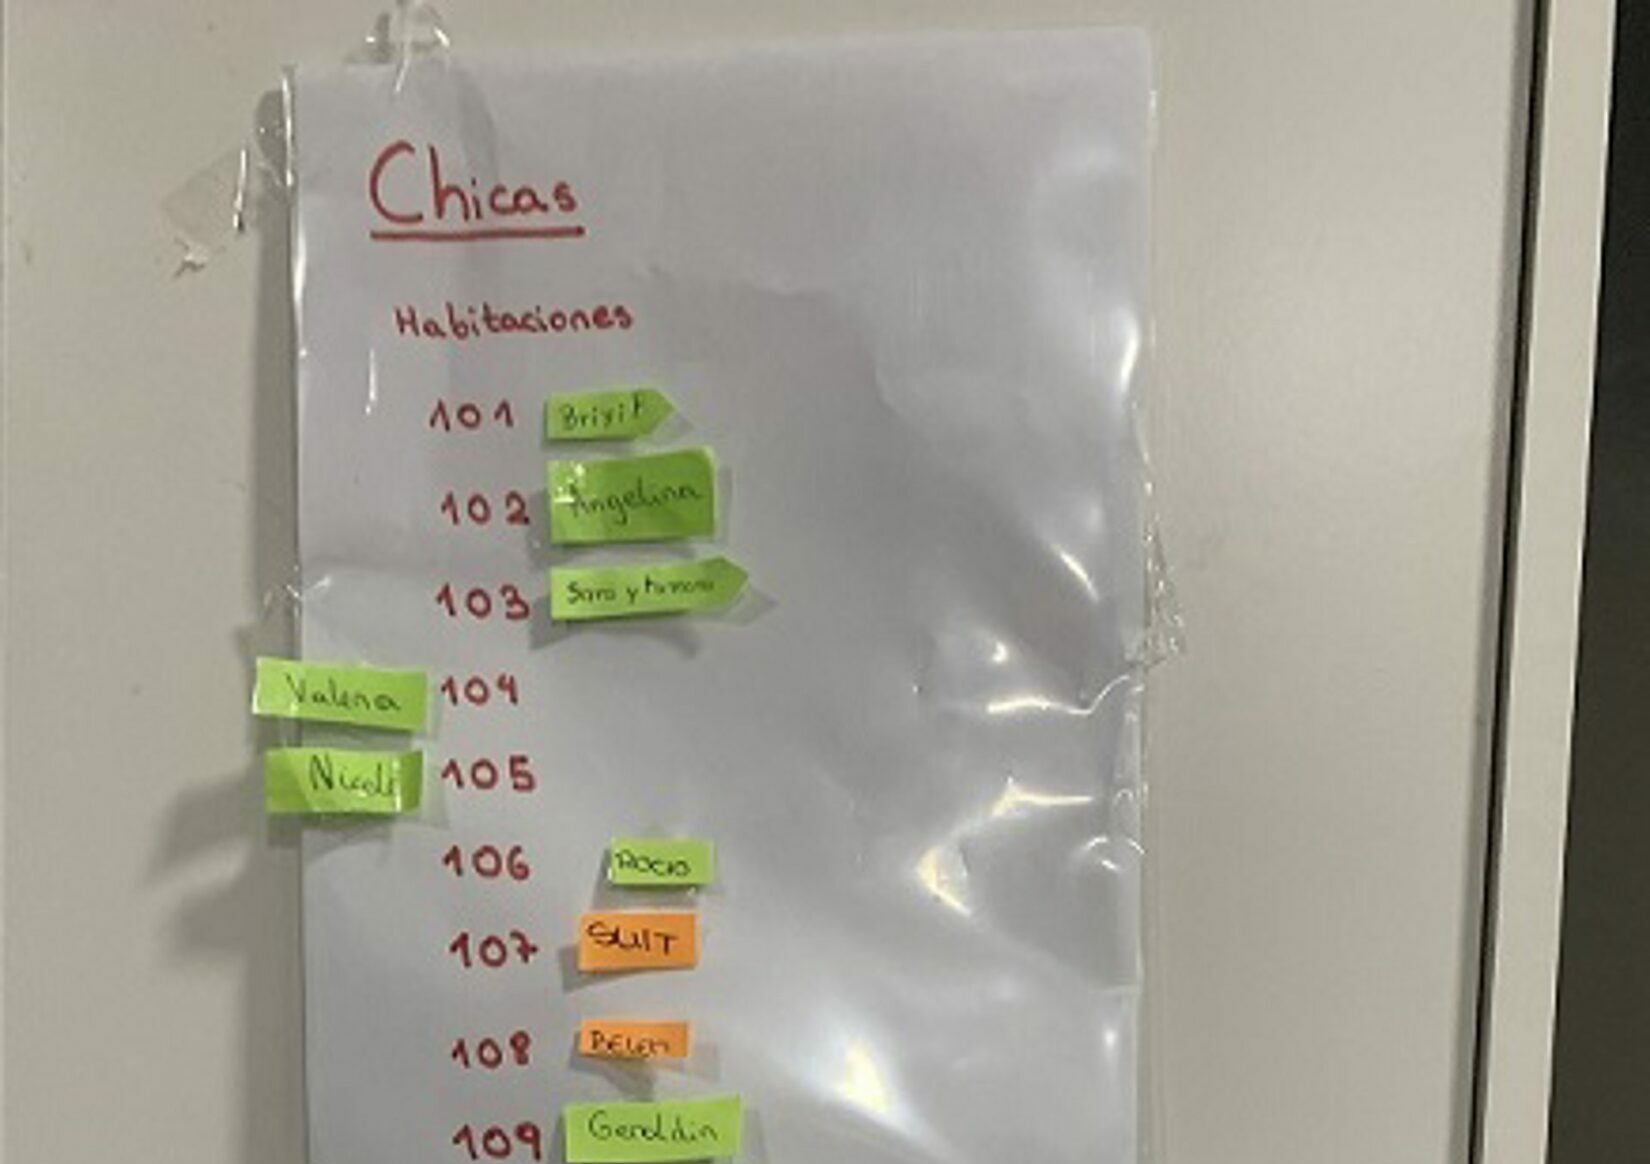 Chicas
Habitaciones
101 Brixit
102 Angelina
103 Sara y
Valeria 104
Nicol 105
106 ROCIO
107 SUIT
108 BELEM
109 Geraldin